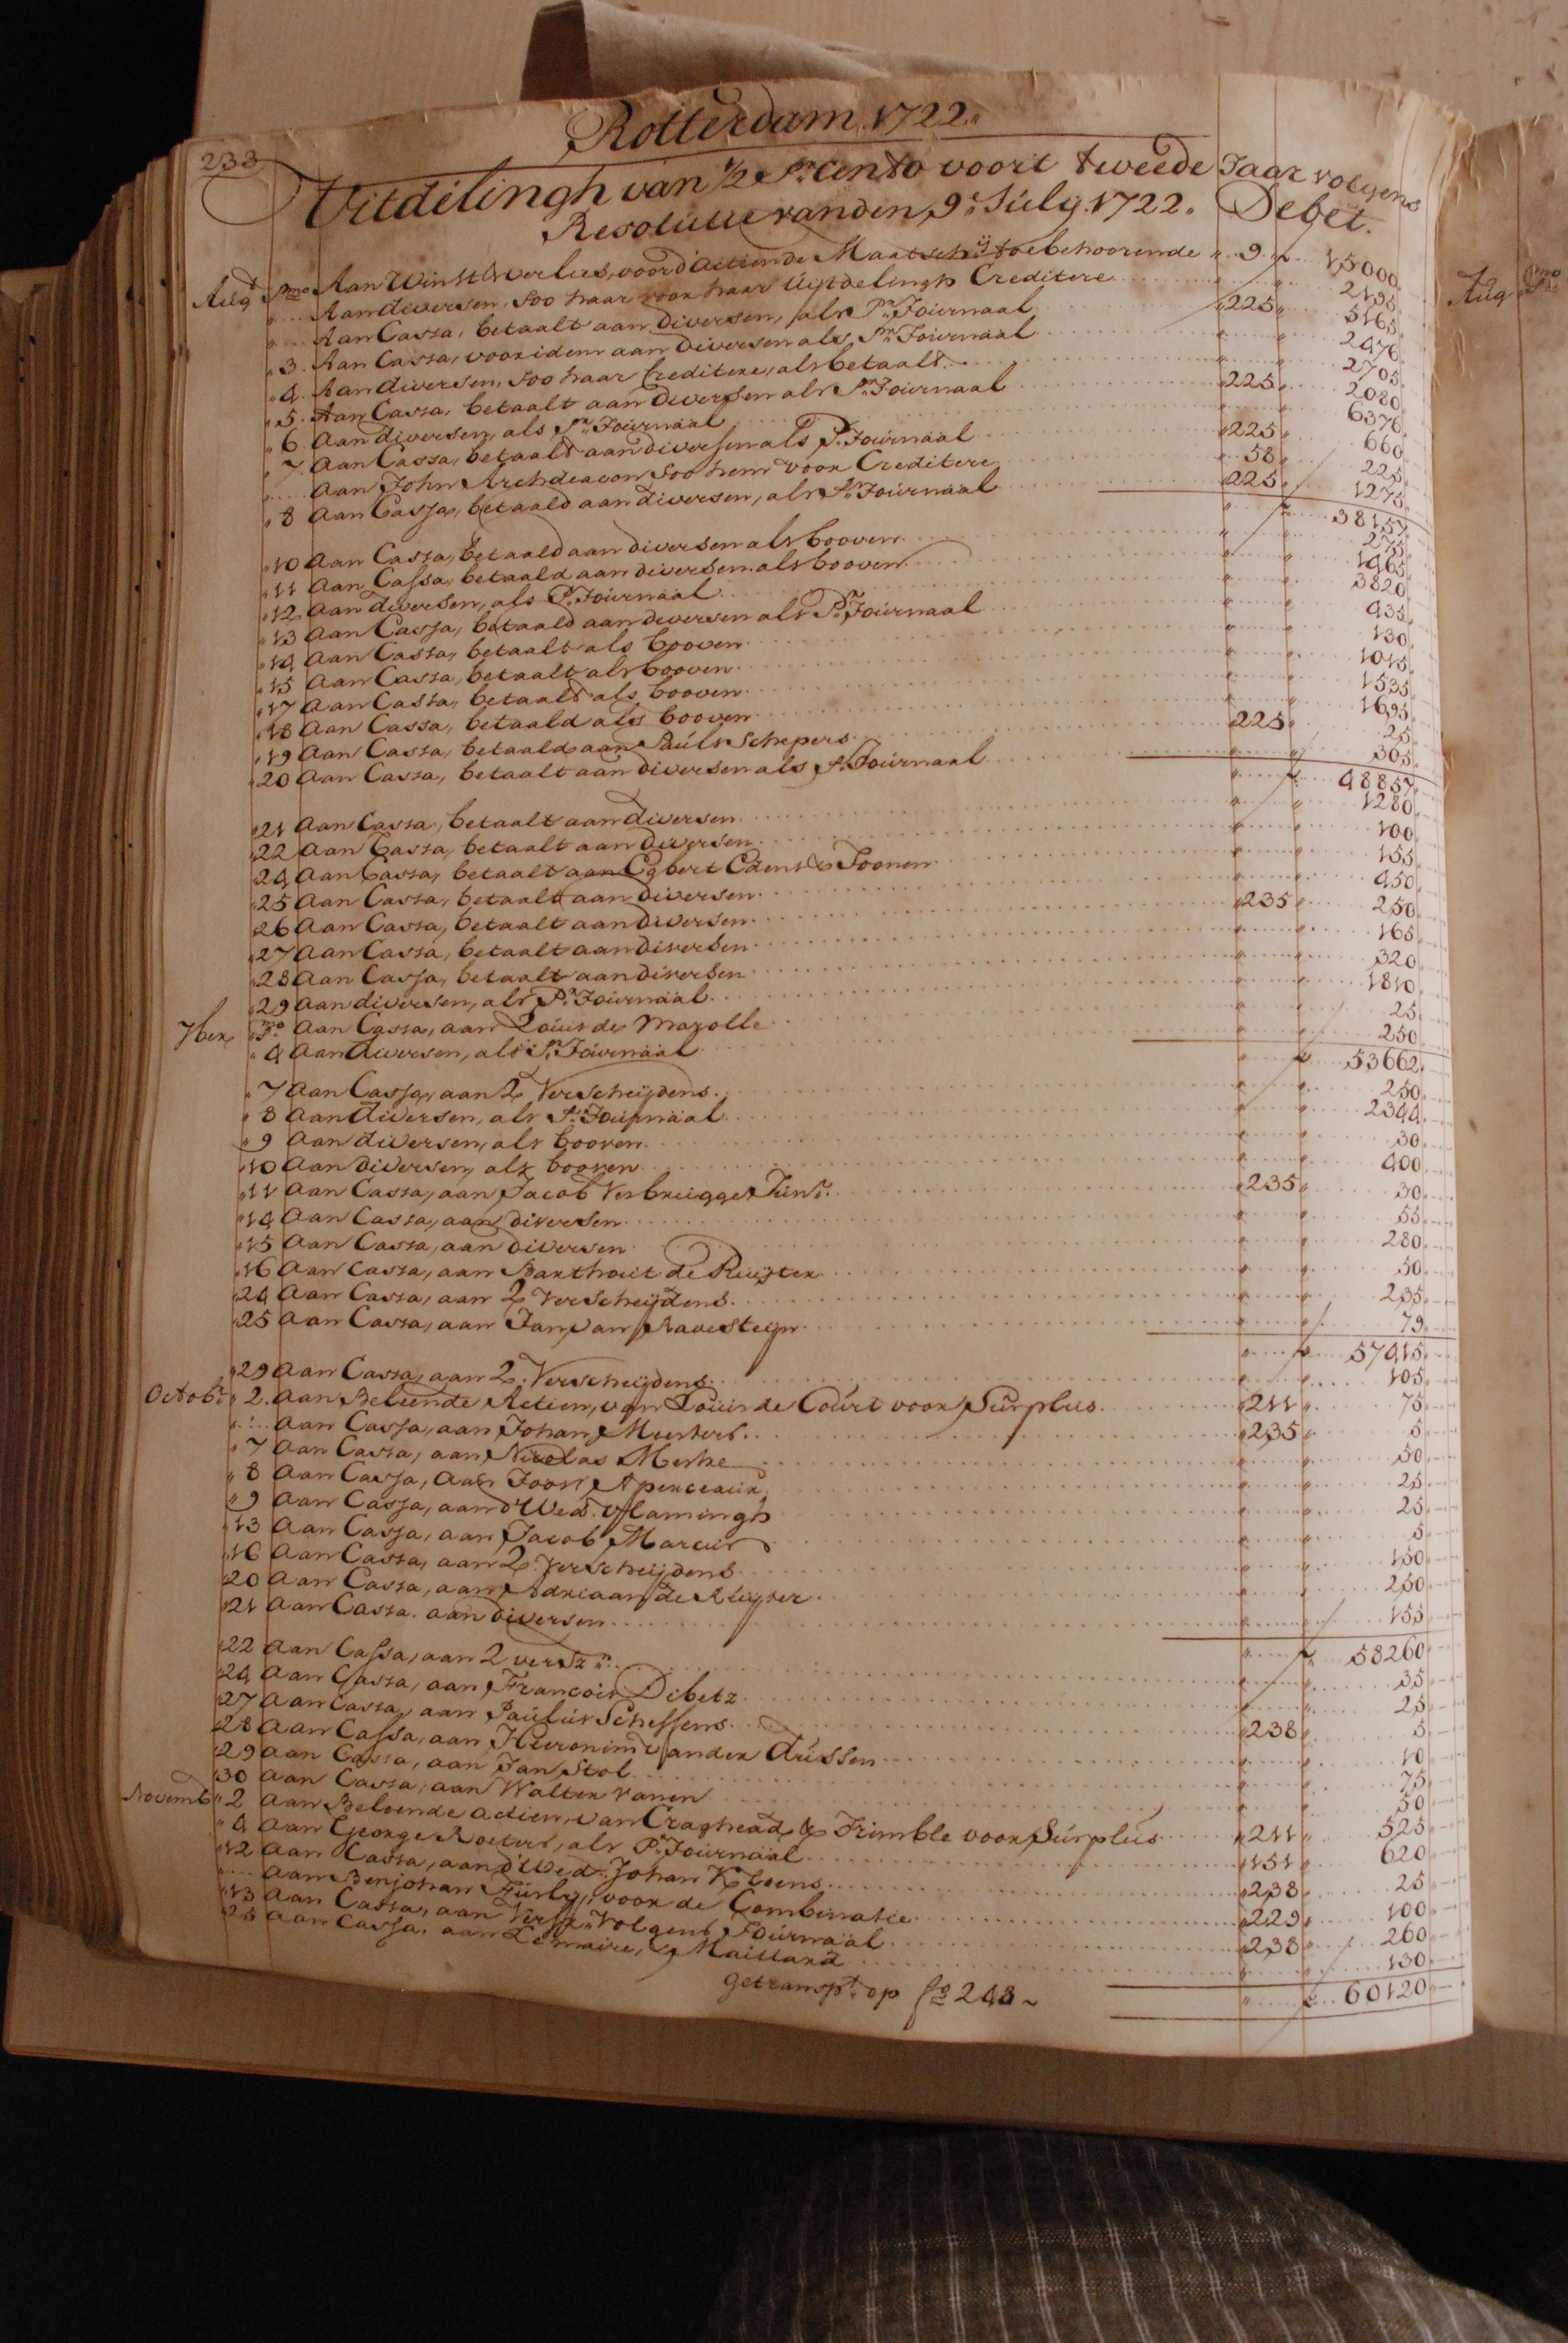 Rotterdam 1722.
233
Uitdilingh van ½ Pr. Cento voort tweede Jaar volgens
Resolutie vanden, 9: July. 1722. Debet.
Augt Pmo Aan Winst & verlies, voord' Actiende Maatschij: toebehoorende 9 15000
Aan diversen. Soo haar voor haar Uytdelingh Creditere 2195
Aan Cassa, betaalt aan Diversen, als Pr. Journaal 225 5165
3. Aan Cassa, voor idem aan Diversen als Pr. Journaal 2476
4. Aan diversen, Soo haar Creditere, als betaalt 2705
5. Aan Cassa, betaalt aan Diversen als Pr. Journaal 225 2080
6 Aan diversen, als Pr. Journaal 6376
7. Aan Cassa, betaald aan diversen als Pr. Journaal 225 660
Aan John Archdeacon Soo hem voor Creditere 58 225
8 Aan Cassa, betaald aan diversen, als Pr. Journaal 225 1275
38157
10 Aan Cassa, betaald aan diversen als booven 275
11 Aan Cassa, betaald aan diversen als booven 1465
12 Aan diversen, als Pr. Journaal 3820
13 Aan Cassa, betaald aan diversen als Pr. Journaal 435
14 Aan Cassa, betaalt als booven 130
15 Aan Cassa, betaalt als booven 1015
17 Aan Cassa, betaald als booven 1535
18 Aan Cassa, betaald als booven 1695
19 Aan Cassa, betaald aan Pauls Schepers 225 25
20 Aan Cassa, betaalt aan diversen als Pr. Journaal 305
48857
21 Aan Cassa, betaalt aan diversen 1280
22 Aan Cassa, betaalt aan diversen 100
24 Aan Cassa, betaalt aan Egbert Edens & Soonen 155
25 Aan Cassa, betaalt aan diversen 450
26 Aan Cassa, betaalt aan diversen 235 250
27 Aan Cassa, betaalt aan diversen 165
28 Aan Cassa, betaalt aan diversen 320
29 Aan diversen, als Pr. Journaal 1810
7ber Pmo Aan Cassa, aan Louis de Marolle 25
4 Aan diversen, als Pr. Journaal 250
53662
7 Aan Cassa, aan 2 Verscheijdens 250
8 Aan diversen, als Pr. Journaal 2344
9 Aan diversen, als booven 30
10 Aan diversen, als booven 400
11 Aan Cassa, aan Jacob Verbrugge Junr. 235 30
14 Aan Cassa, aan diversen 55
15 Aan Cassa, aan diversen 280
16 Aan Cassa, aan Barthout de Ruijter 50
24 Aan Cassa, aan 2 Verscheijdens 235
25 Aan Cassa, aan Jan van Ravesteijn 79
57415
29 Aan Cassa, aan 2 Verscheijdens 105
Octobr. 2. Aan Beleende Actien, van Louis de Court voor Surplus 211 75
Aan Cassa, aan Johan Meesters 235 5
7 Aan Cassa, aan Nicolas Merke 50
8 Aan Cassa, aan Joost 25
9 Aan Cassa, aan d'Wed. Vlamingh 25
13 Aan Cassa, aan Jacob Marcus 5
16 Aan Cassa, aan 2 Verscheijdens 150
20 Aan Cassa, aan Adriaan de Kluyser 250
21 Aan Cassa. aan diversen 155
58260
22 Aan Cassa, aan 2 versz:n 35
24 Aan Cassa, aan Francois Dibetz 25
27 Aan Cassa, aan Paulus Scheffens 238 5
28 Aan Cassa, aan Hieronimus vander Dussen 10
29 Aan Cassa, aan Jan Stol 75
30 Aan Cassa, aan Walter Vanen 50
Novemb 2 Aan Beleende actien, van Craghead & Trimble voor Surplus 211 525
4 Aan George Roeters, als Pr. Journaal 151 620
12 Aan Cassa, aan d'Wed. Johan Kloens 238 25
Aan Benjohan Furly, voor de Combinatie 229 100
13 Aan Cassa, aan Versz:n Volgens Journaal 238 260
25 Aan Cassa. aan Lemaire, & Maillard 130
getranspt. op fo 248 60120
Aug Pmo